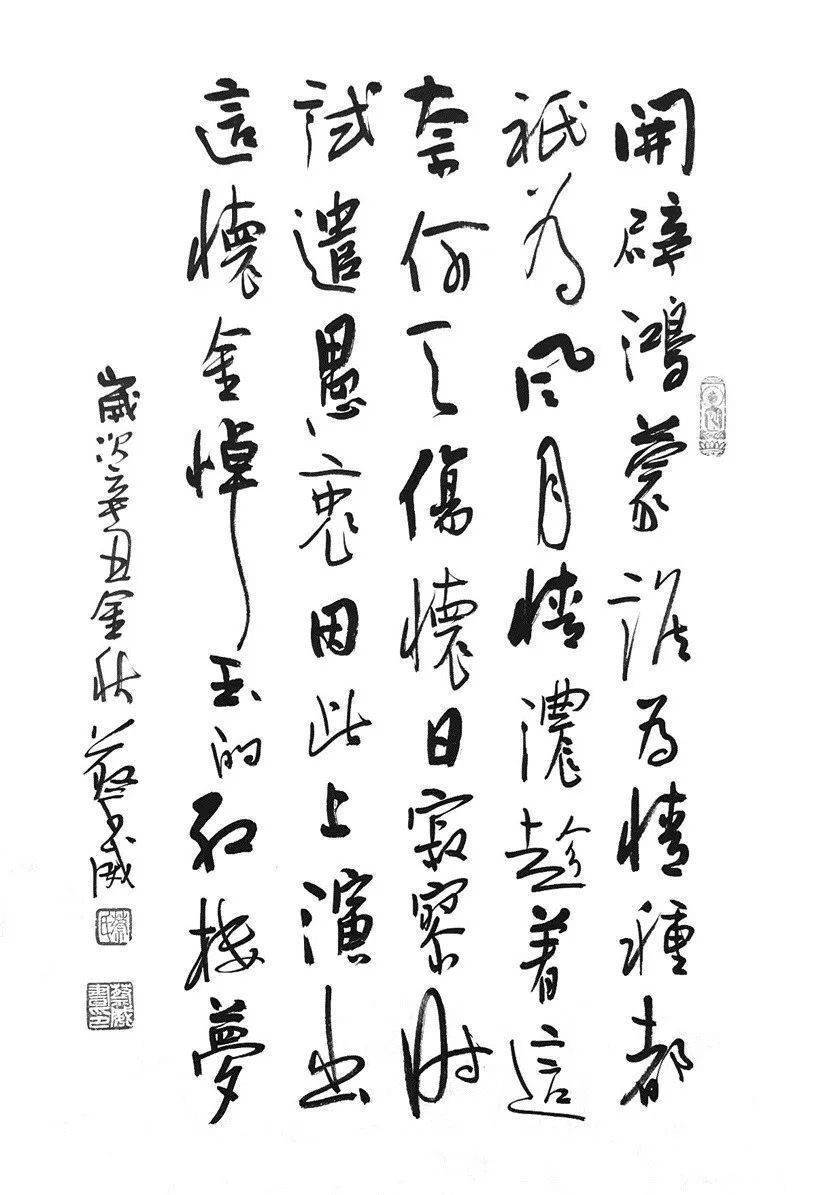 開辟鴻蒙誰為情種都
祇為風月情濃趁着這
奈何天傷懷日寂寥时
試遣愚衷因此上演出
這懷金悼玉的紅楼夢
歲次辛丑金秋蔡威
蔡氏
蔡威書印